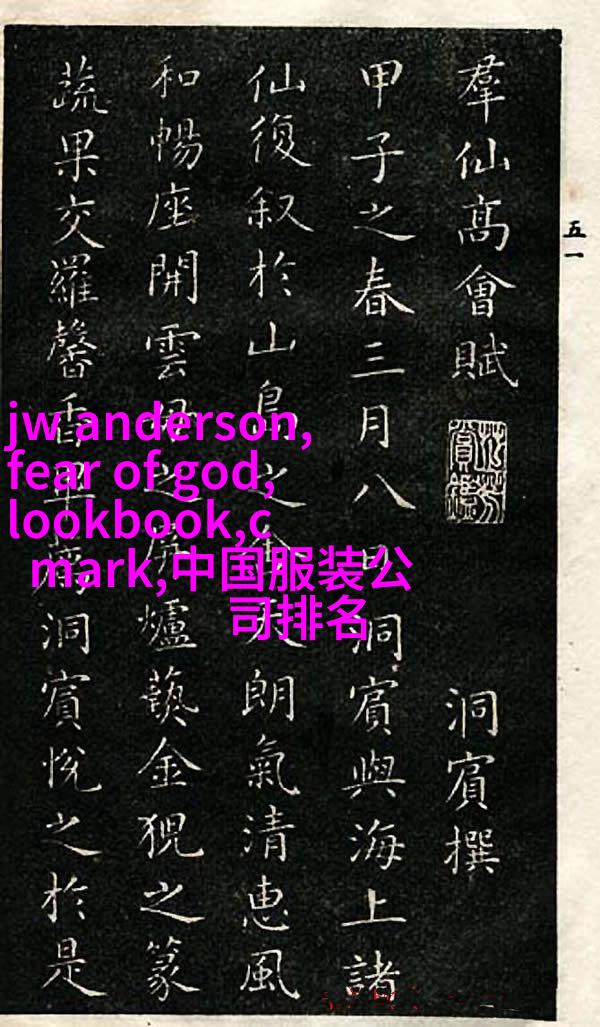 五一
羣仙高會賦
洞賓撰
甲子之春三月八日洞賓與海上諸
仙復叙於山島之天朗氣清惠風
和暢座開雲母之屏爐藝金猊之篆
蔬果交羅馨香畢洞賓悅之於是
jw anderson,
fear of god,
lookbook,c
mark,中国服装公
司排名